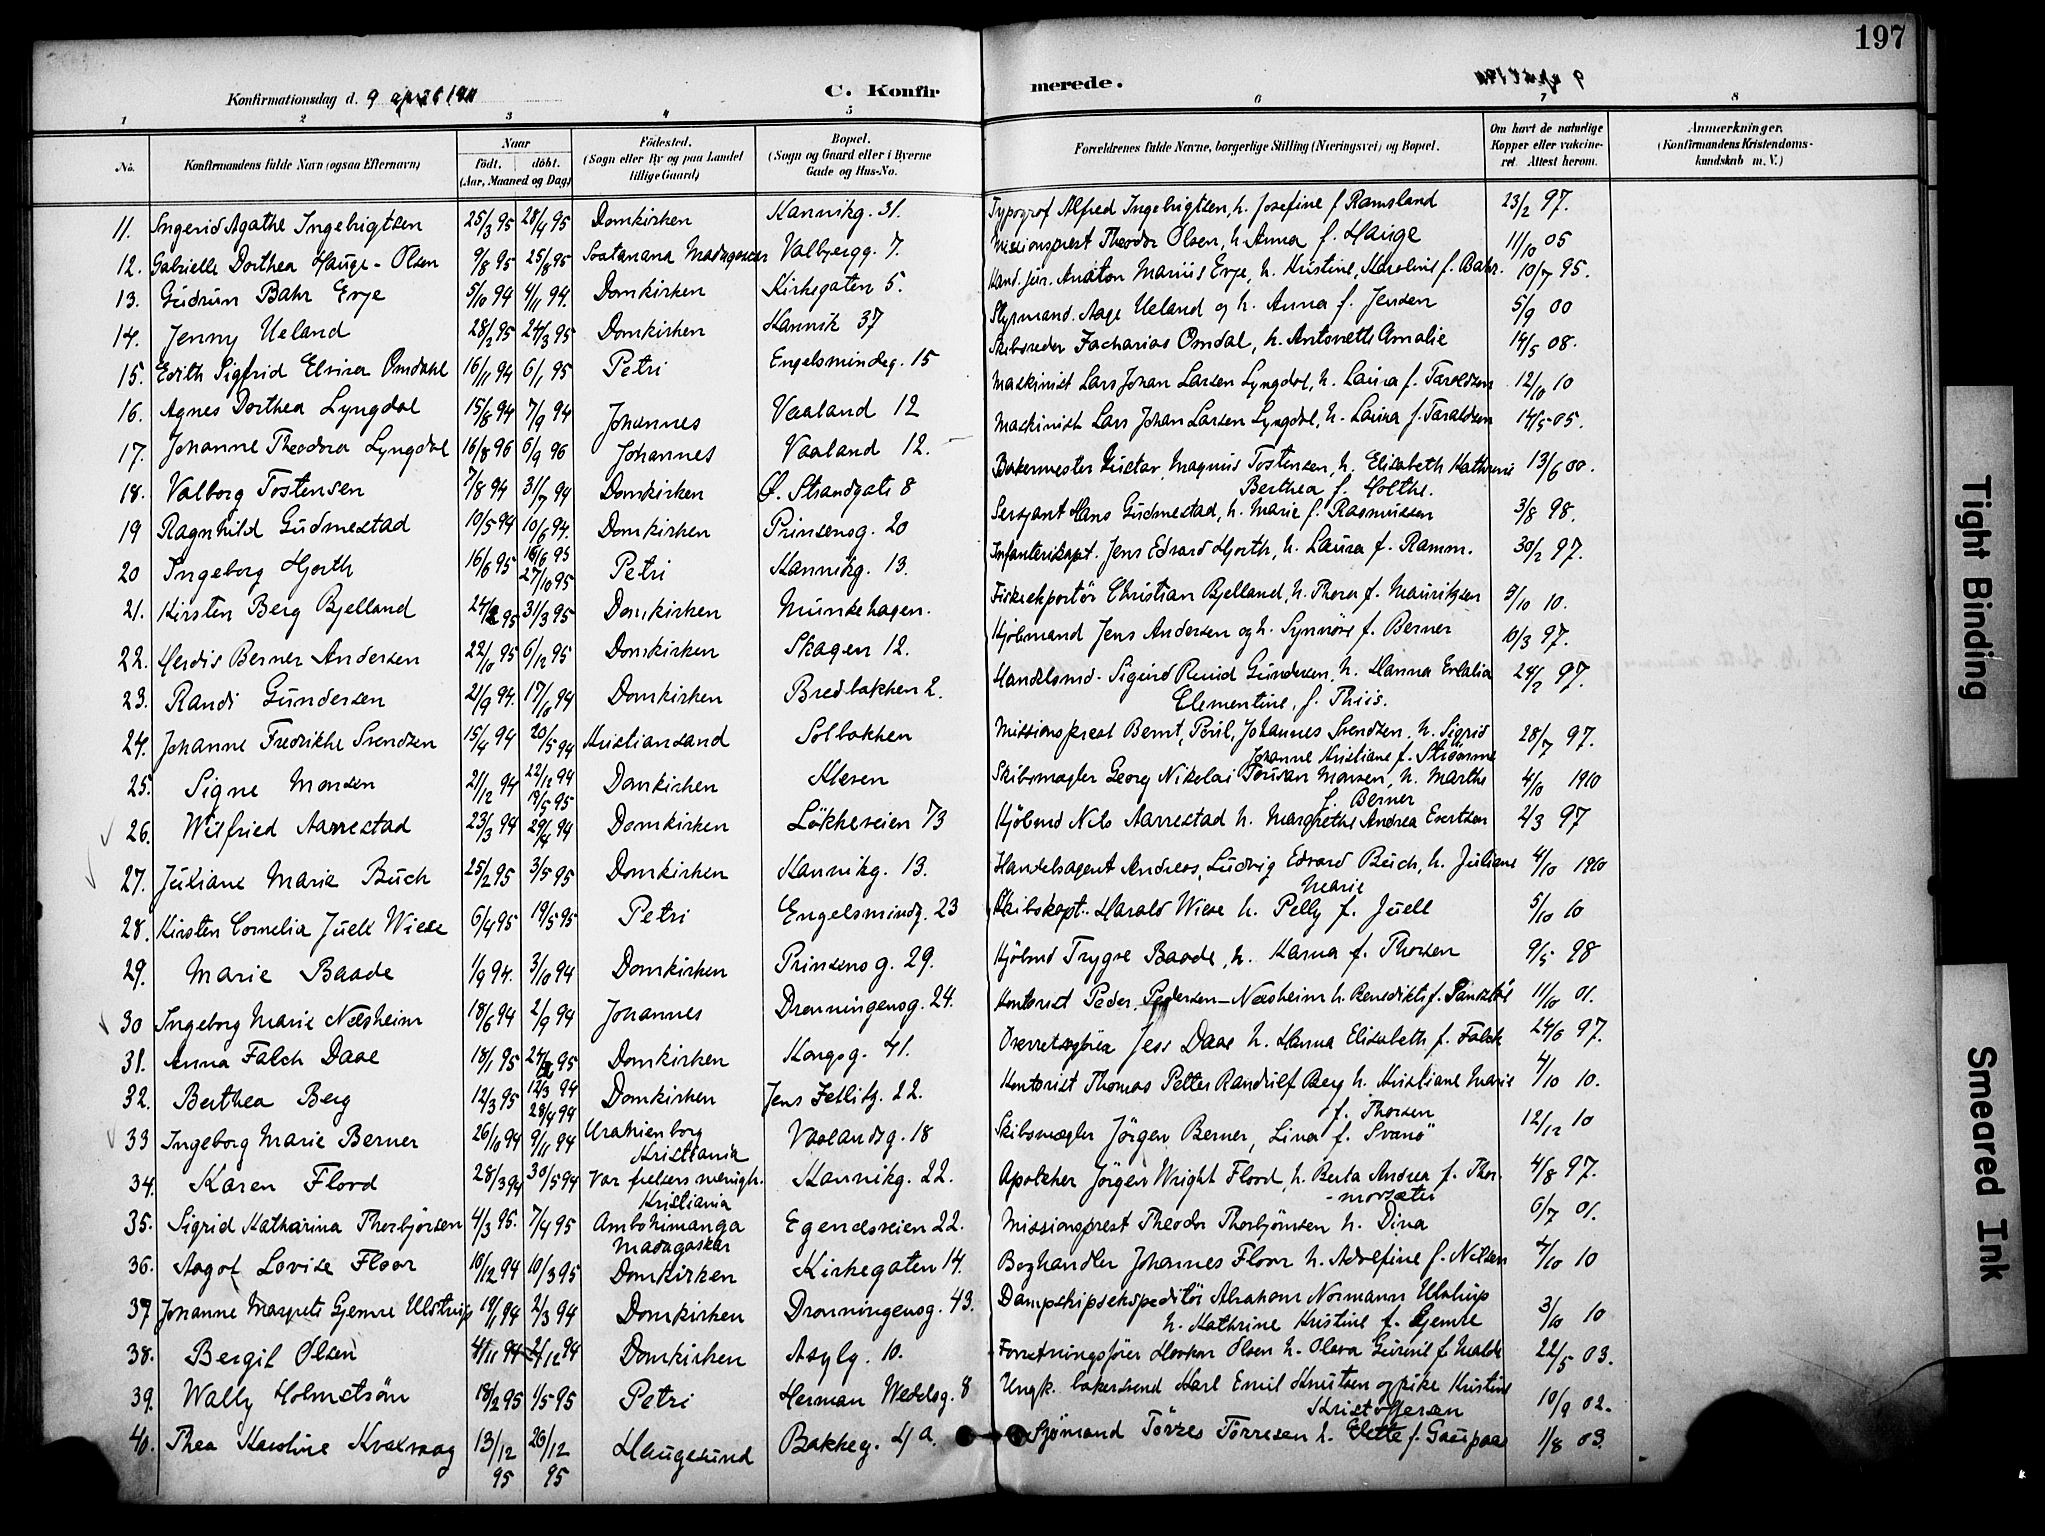 197
Konfirmationsdag d. 9 april 1911 C. Konfirmerede. 9 april 1911
1 2 3 4 5 6 7 8
No. Konfirmandens fulde Navn (ogsaa Efternavn) Naar født, døbt. (Aar, Maaned og Dag) Fødested. (Sogn eller By og paa Landet tillige Gaard) Bopæl. (Sogn og Gaard eller i Byerne Gade og Hus-No. Forældrenes fulde Navne, borgerlige Stilling (Næringsvei) og Bopæl. Om havt de naturlige Kopper eller vakcineret. Attest herom. Anmærkninger. (Konfirmandens Kristendomskundskab m. V.)
11. Ingerid Agathe Ingebrigtsen 25/3 95 28/4 95 Domkirken Kannikg. 31. Typograf Alfred Ingebrigtsen, h. Josefine f. Ramsland 23/2 97.
12. Gabrielle Dorthea Hauge-Olsen 9/8 95 25/8 95 Soatanana Madagascar Valbergg. 7. Missionsprest Theodor Olsen, h. Anna f. Hauge 11/10 05
13. Gudrun Bahr Erje 5/10 94 4/11 94. Domkirken Kirkegaten 5. Kand. jur. Anaton Marius Erje, h. Kristine, Karoline f. Bahr. 10/7 95.
14. Jenny Ueland 28/2 95 24/3 95 Domkirken Kannik 37 Styrmand. Aage Ueland og h. Anna f. Jensen 5/9 00
15. Edith Sigfrid Elvira Omdahl 16/11 94 6/1 95 Petri Engelsmindeg. 15 Skibsreder Zacharias Omdal, h. Antonette Amalie 14/5 08.
16. Agnes Dorthea Lyngdal 15/8 94 7/9 94 Johannes Vaaland 12 Maskinist Lars Johan Larsen Lyngdal, h. Laura f. Taroldsen 12/10 10
17. Johanne Theodora Lyngdal 16/8 96 6/9 96 Johannes Vaaland 12. Maskinist Lars Johan Larsen Lyngdal, h. Laura f. Taraldsen 14/5 05.
18. Valborg Tostensen 7/8 94 31/7 94 Domkirken Ø. Strandgate 8 Bakermester Gustav Magnus Tostensen, h. Elisabeth Kathrine 13/6 00.
Berthea f. Holthe.
19 Ragnhild Gudmestad 10/5 94 10/6 94. Domkirken Prinsensg. 20 Sersjant Hans Gudmestad, h. Marie f. Rasmussen 3/8 98.
20 Ingeborg Hjorth 16/6 95 16/6 95 27/10 95 Petri Kannikg. 13. Infanterikapt. Jens Edvard Hjorth, h. Laura f. Ramm. 30/2 97.
21. Kirsten Berg Bjelland 24/2 95 31/3 95 Domkirken Munkehagen. Fiskeekportör Christian Bjelland, h. Thora f. Mauritzen 3/10 10.
22. Herdis Berner Andersen 22/10 95 6/12 95 Domkirken Skagen 12. Kjöbmand Jens Andersen og h. Synnöve f. Berner 10/3 97.
23. Randi Gundersen 21/9 94. 17/10 94 Domkirken Bredbakken 2. Handelsmd. Sigurd Gundersen, h. Hanna Eulalia 24/2 97.
Clementine, f. Thiis.
24. Johanne Fredrikke Svendsen 15/4 94 20/5 94 Kristiansand Solbakken Missionsprest Bernt, Poul, Johannes Svendsen, h. Sigrid 28/7 97.
Johanne Kristiane f. Strömme
25. Signe Monsen 21/12 94 22/12 94 19/5 95 Domkirken Skibsmægler Georg Nikolai Monsen, h. Marthe 4/10 1910
f. Berner
26. Wilfried Aarrestad 23/3 94 29/4 94 Domkirken Lökkeveien 73 Kjöbmd Nils Aarrestad h. Margrethe Andrea Evertsen 2/3 97
27. Juliane Marie Buch 25/2 95 3/5 95 Domkirken Kannikg. 13. Handelsagent Andreas, Ludvig Edvard Buch, h. Juliane 4/10 1910
Marie
28. Kirsten Cornelia Juell Wiese 6/4 95 19/5 95 Petri Engelsmindg. 23 Skibskapt. Harald Wiese h. Pelly f. Juell 5/10 10
29. Marie Baade 1/9 94. 3/10 94 Domkirken Prinsensg. 29. Kjöbmd Trygve Baade, h. Karna f. Thorsen 9/5 98
30 Ingeborg Marie Næsheim 18/6 94 2/9 94 Johannes Dronningensg. 24. Kontorist Peder Pedersen-Næsheim h. Benedikte f. 11/10 01.
31. Anna Falch Daae 18/1 95 95 Domkirken Kongsg. 41. Overretssagförer Jess Daae h. Hanna Elisabeth f. Falck 24/6 97.
32. Berthea Berg 12/3 95 12/3 94 28/4 94 Domkirken Jens Zetlitzg. 22. Kontorist Thomas Petter Randulf Berg h. Kristiane Marie 4/10 10.
f. Thorsen
33 Ingeborg Marie Berner 26/10 94 9/11 94 Uranienborg Kristiania Vaalandsg. 18 Skibsmægler Jörgen Berner, Lina f. Svanö 12/12 10
34. Karen Flood 28/3 94 30/5 94 Vor frelsers menigh. Kristiania Kannikg. 22. Apoteker Jörgen Wright Flood, h. Berta Andrea f. Thor- 4/8 97.
-morsæter
35. Sigrid Katharina Thorbjörnsen 4/3 95. 7/4 95 Ambohimanga Madagaskar Egenesveien 22. Missionsprest Theodor Thorbjörnsen h. Dina 6/7 01.
36. Aagot Lovise Floor 10/12 94 10/3 95 Domkirken Kirkegaten 14. Boghandler Johannes Floor h. Adolfine f. Nilsen 4/10 10
37 Johanne Margrete Gjemre Ulstrup 19/1 94 2/3 94 Domkirken Dronningensg. 43. Dampskipsekspeditör Abraham Normann Ulstrup 3/10 10
h. Kathrine Kristine f. Gjemre
38. Bergit Olsen 4/11 94 2/12 94 Domkirken Asylg. 10. Forretningsförer Haakon Olsen h. Olava f. Malde 22/5 03.
39. Wally Holmetsön 18/2 95 1/5 95 Petri Herman Wedelsg. 8 Ungk. bakersvend Karl Emil Knutsen og pike Kristine 10/9 02.
Kristoffersen
40. Thea Karoline Kvaevaag 13/12 95 26/12 95 Haugesund Bakkeg. 4 a. Sjömand Törres Törresen h. Elette f. Gaupaas 1/8 03.
Tight Binding
Smeared Ink